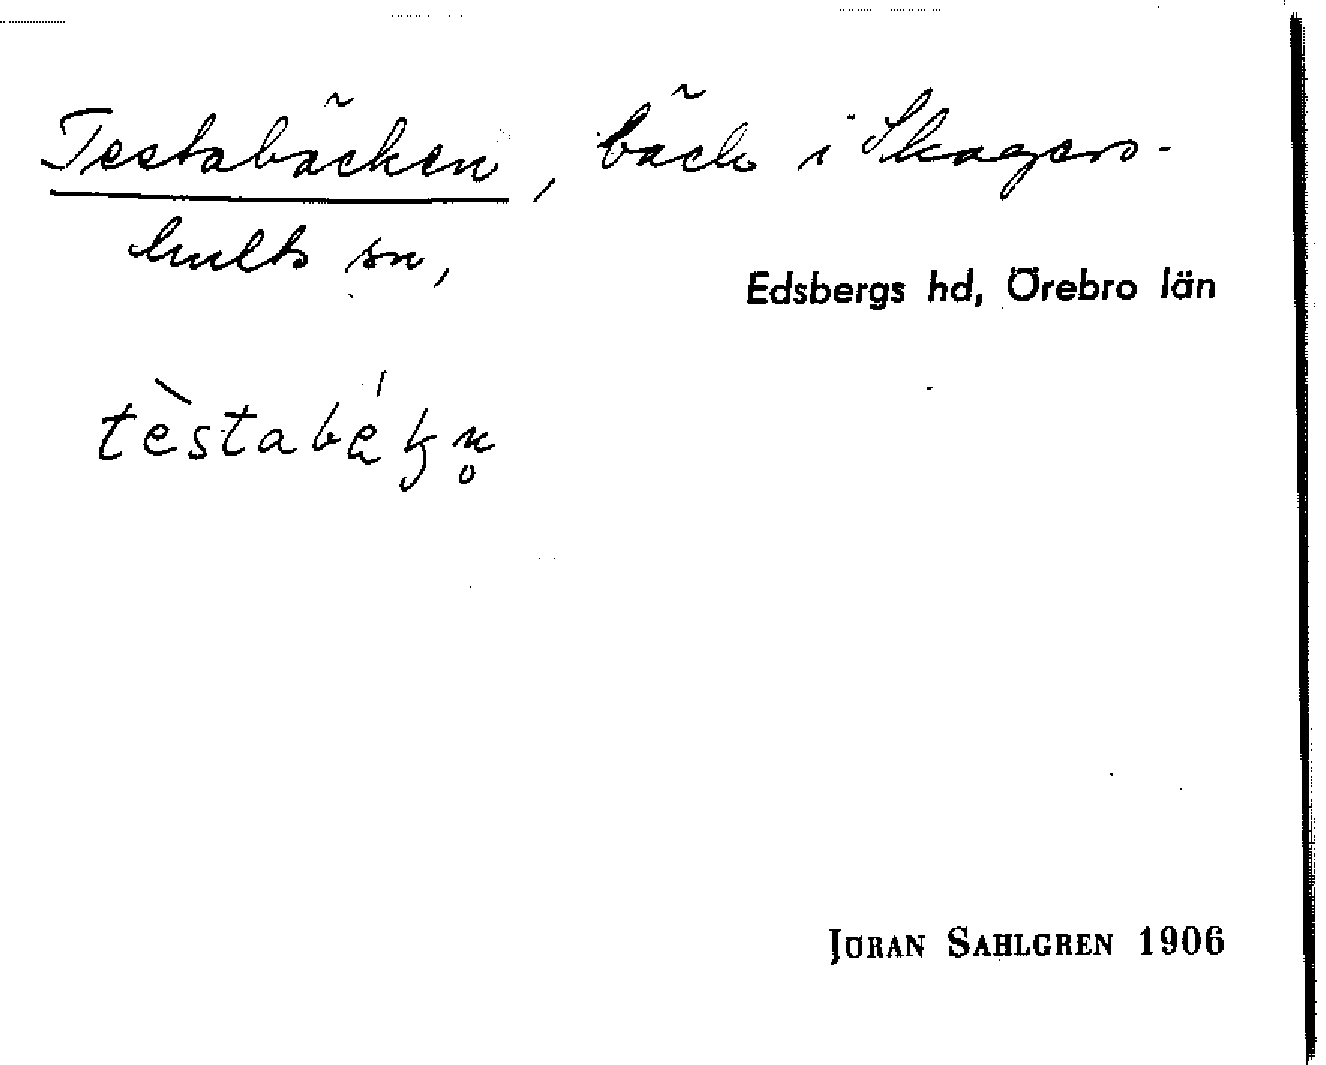 Testabäcken, bäck i Skagers-
hults sn,
Edsbergs hd, Örebro län
tèstabę́ʹkn̥
JÖRAN SAHLGREN 1906